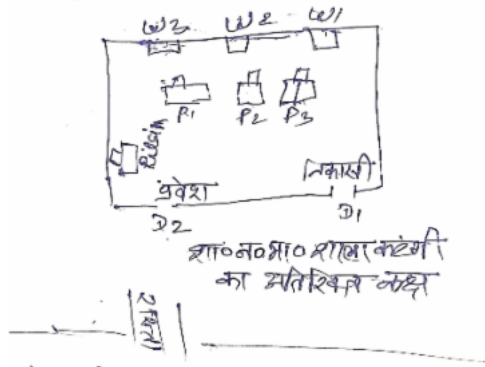 W3 W2 W1
P1 P2 P3
प्रवेश निकासी
D2 D1
शा०न०मा० शाला कटंगी
का अतिरिक्त कक्ष